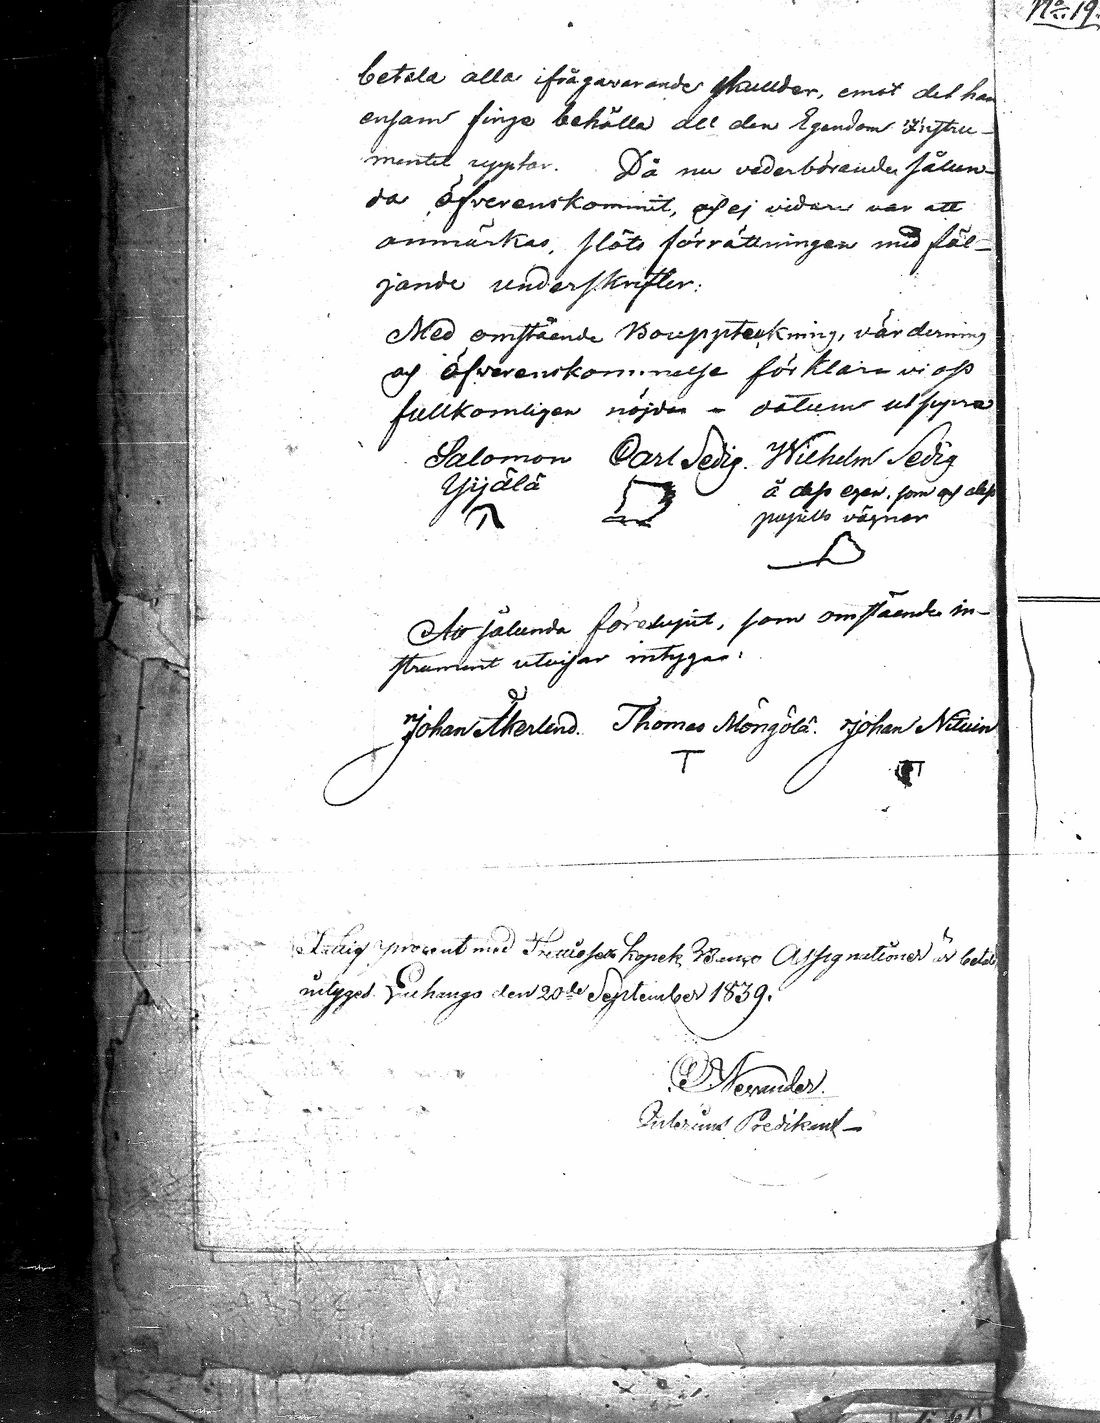 No 19.
betala alla ifrågavarande skulder, emot det han
ensam finge behålla all den Egendom Instru-
mentet upptar. Då nu vederbörande sålun-
da öfverenskommit, och ej vidare var att
anmärkas, slöts förrättningen med föl-
jande underskrifter:
Med omstående Bouppteckning, värdering
och öfverenskommelse förklara vi oss
fullkomligen nöjda – datum ut supra
Salomon Carl Sedig. Wilhelm Sedig
Yijälä å dess egen, som och dess
pupills vägnar
Att sålunda föredupit, som omstående in-
strument utvisar intygas:
Johan Åkerlund. Thomas Möngölä. Johan
procent med kopek Banco Assignationer är betalt
intygas den 20de September 1839.
Predikant